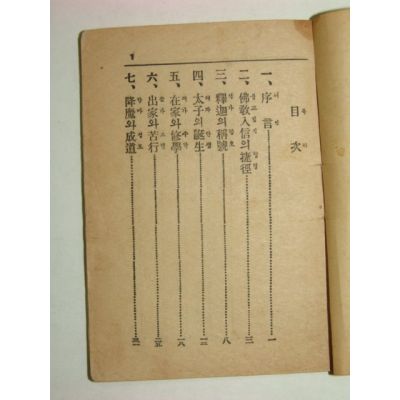 目次
一、序言 一
二、佛敎入信의捷徑 三
三、釋迦의稱號 八
四、太子의誕生
五、在家와修學 一八
六、出家와苦行 二五
七、降魔와成道
1